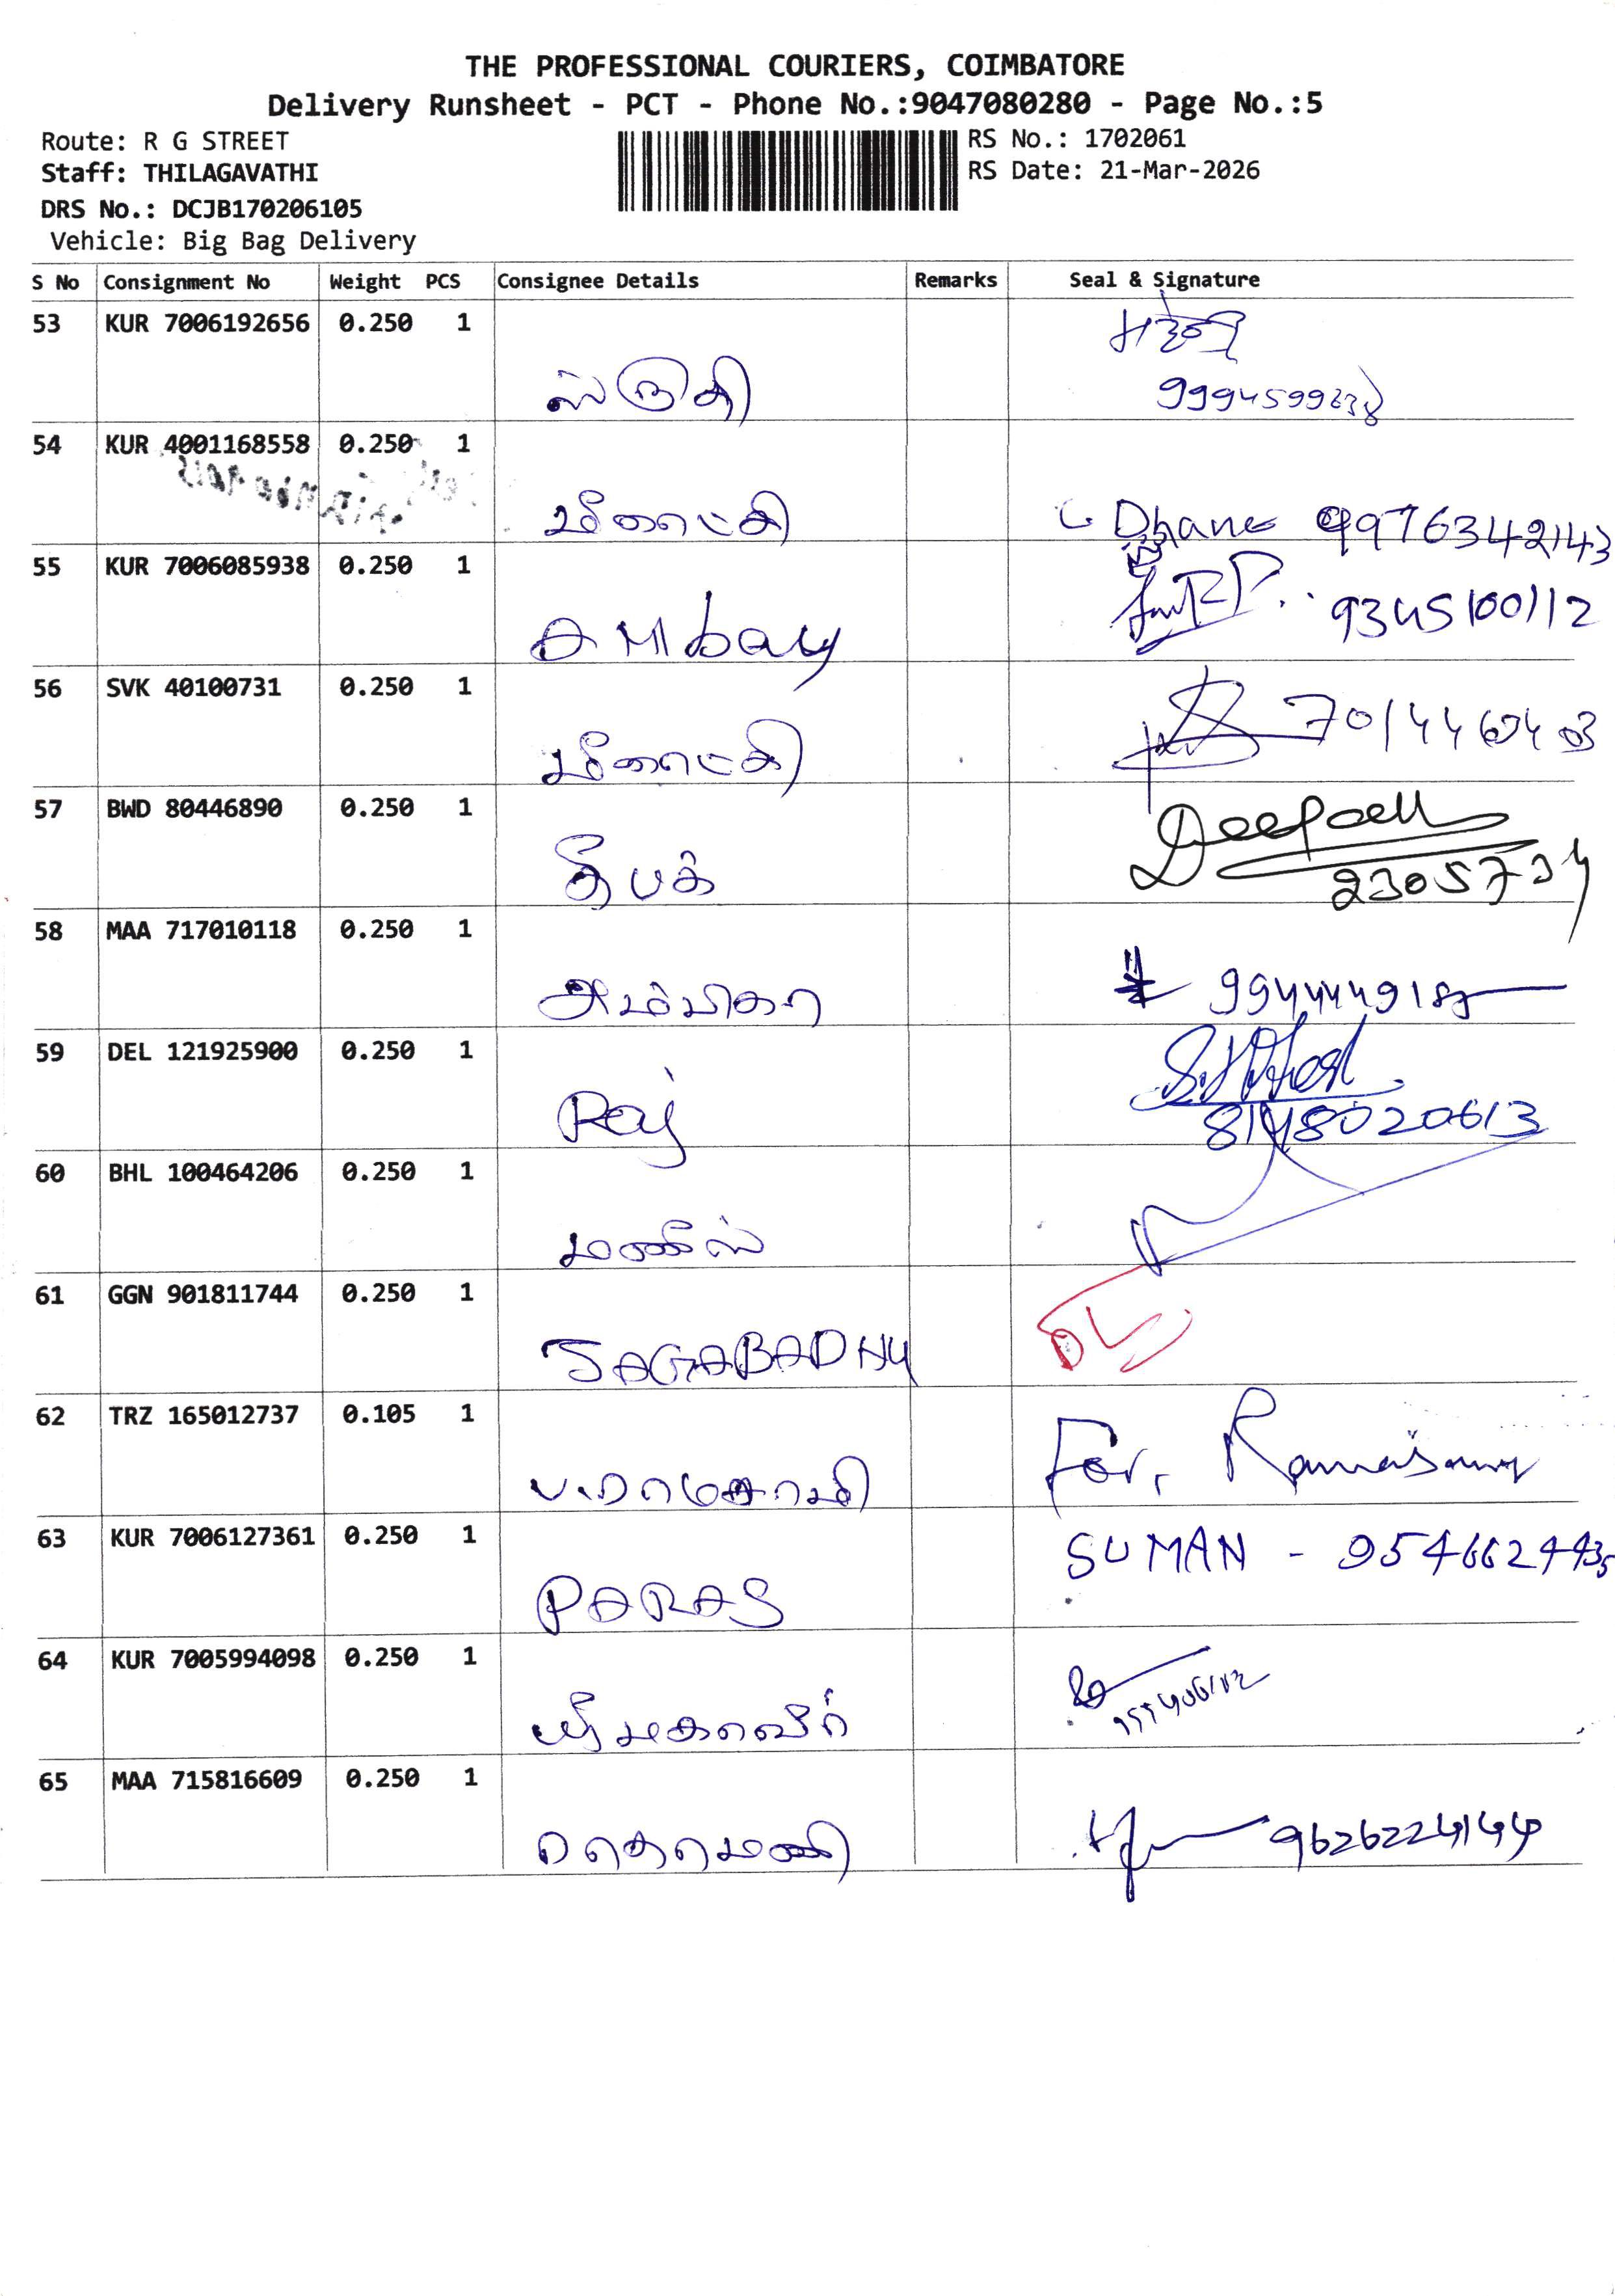 THE PROFESSIONAL COURIERS, COIMBATORE
Delivery Runsheet - PCT - Phone No.:9047080280 - Page No.:5
Route: R G STREET
RS No.: 1702061
Staff: THILAGAVATHI
RS Date: 21-Mar-2026
DRS No.: DCJB170206105
Vehicle: Big Bag Delivery
S No Consignment No Weight PCS Consignee Details Remarks Seal & Signature
53 KUR 7006192656 0.250 1
ஸ்ருதி
54 KUR 4001168558 0.250 1
மீனாட்சி Dhana 9976342143
55 KUR 7006085938 0.250 1
AMbay 9345100112
56 SVK 40100731 0.250 1
மீனாட்சி
57 BWD 80446890 0.250 1
தீபக் Deepak
2305734
58 MAA 717010118 0.250 1
அம்பிகா
59 DEL 121925900 0.250 1
Raj
8148020613
60 BHL 100464206 0.250 1
மணிஸ்
61 GGN 901811744 0.250 1
JAGABADHY
DL
62 TRZ 165012737 0.105 1
For, Ramaisamy
63 KUR 7006127361 0.250 1
SUMAN - 9546624435
PARAS
64 KUR 7005994098 0.250 1
ஸ்ரீமகாவீர்
65 MAA 715816609 0.250 1
ராதாமணி 9626224144